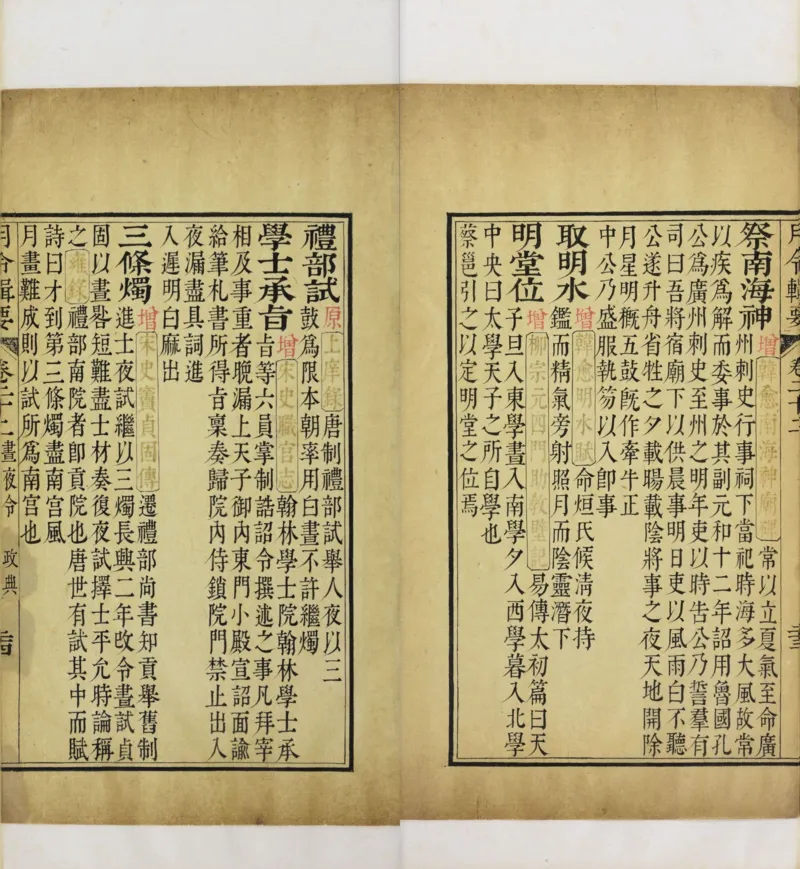 月令輯要 卷二十二
祭南海神 增 韓愈南海神廟碑 常以立夏氣至命廣
州刺史行事祠下當祀時海多大風故常
以疾爲解而委事於其副元和十二年詔用魯國孔
公爲廣州刺史至州之明年吏以時告公乃誓羣有
司曰吾將宿廟下以供晨事明日吏以風雨白不聽
公遂升舟省牲之夕載暘載陰將事之夜天地開除
月星明穊五鼓旣作牽牛正
中公乃盛服執笏以入卽事
取明水 增 韓愈明水賦 命烜氏候清夜持
鑑而精氣旁射照月而陰靈潛下
明堂位 增 柳宗元四門助教壁記 易傳太初篇曰天
子旦入東學晝入南學夕入西學暮入北學
中央曰太學天子之所自學也
蔡邕引之以定明堂之位焉
禮部試 原 上庠錄 唐制禮部試舉人夜以三
鼓爲限本朝率用白晝不許繼燭
學士承旨 增 宋史職官志 翰林學士院翰林學士承
旨等六員掌制誥詔令撰述之事凡拜宰
相及事重者晚漏上天子御內東門小殿宣詔面諭
給筆札書所得旨稟奏歸院內侍鎖院門禁止出入
夜漏盡具詞進
入遲明白麻出
三條燭 增 宋史竇貞固傳 遷禮部尚書知貢舉舊制
進士夜試繼以三燭長興二年改令晝試貞
固以晝晷短難盡士材奏復夜試擇士平允時論稱
之 雍錄 禮部南院者卽貢院也唐世有試其中而賦
詩曰才到第三條燭盡南宮風
月畫難成則以試所爲南宮也
月令輯要 卷二十二 晝夜令 政典